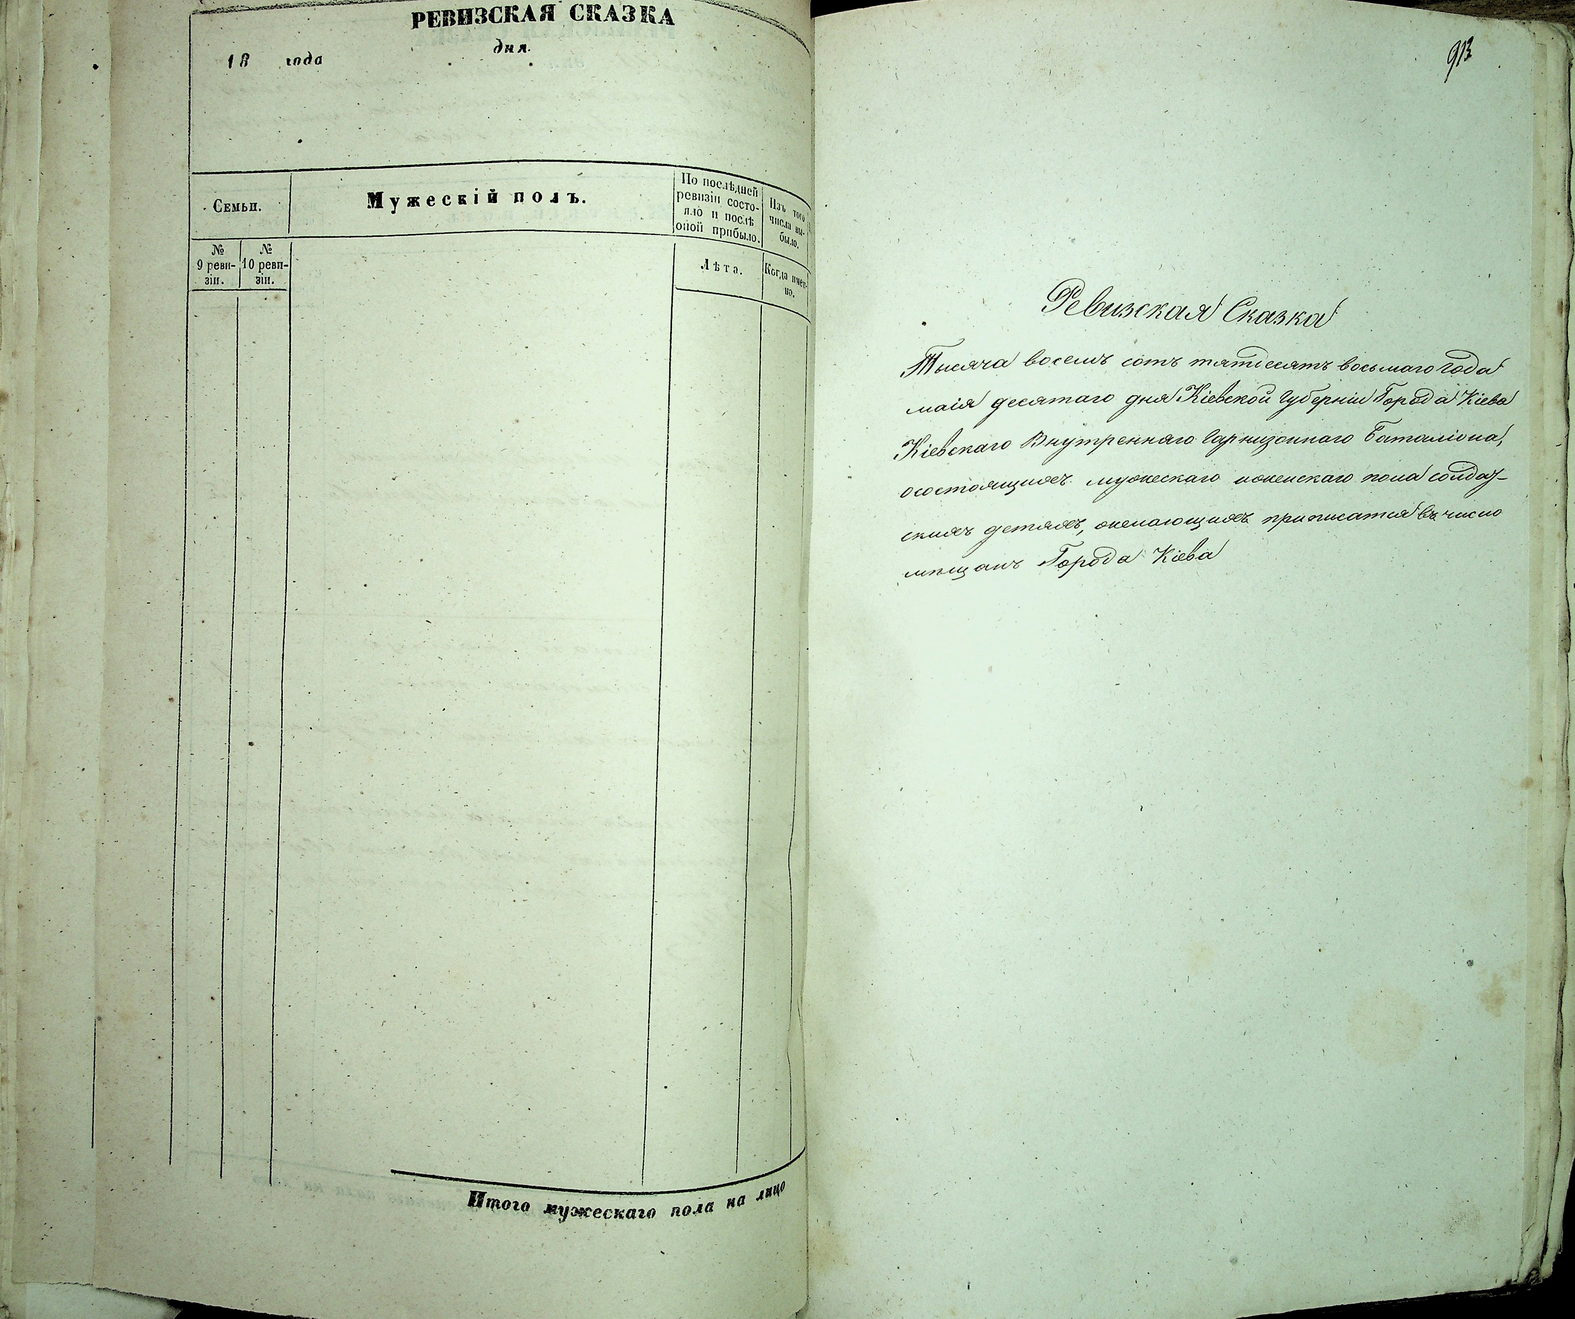 РЕВИЗСКАЯ СКАЗКА
18 года дня
Семьи.
Мужескій полъ.
По послѣдней
ревизіи состо-
яло и послѣ
оной прибыло.
Изъ того
числа вы-
было.
№
9 реви-
зіи.
№
10 реви-
зіи.
Лѣта.
Когда имен-
но.
Итого мужескаго пола на лицо
913
Ревизская Сказка
Тысяча восемъ сотъ пятдесятъ восьмаго года
маія десятаго дня Кіевской Губерніи Города Кіева
Кіевскаго Внутренняго Гарнизоннаго Баталіона,
о состоящихъ мужескаго и женскаго пола солдат-
скихъ детяхъ, желающихъ приписатся въ число
мѣщанъ Города Кіева